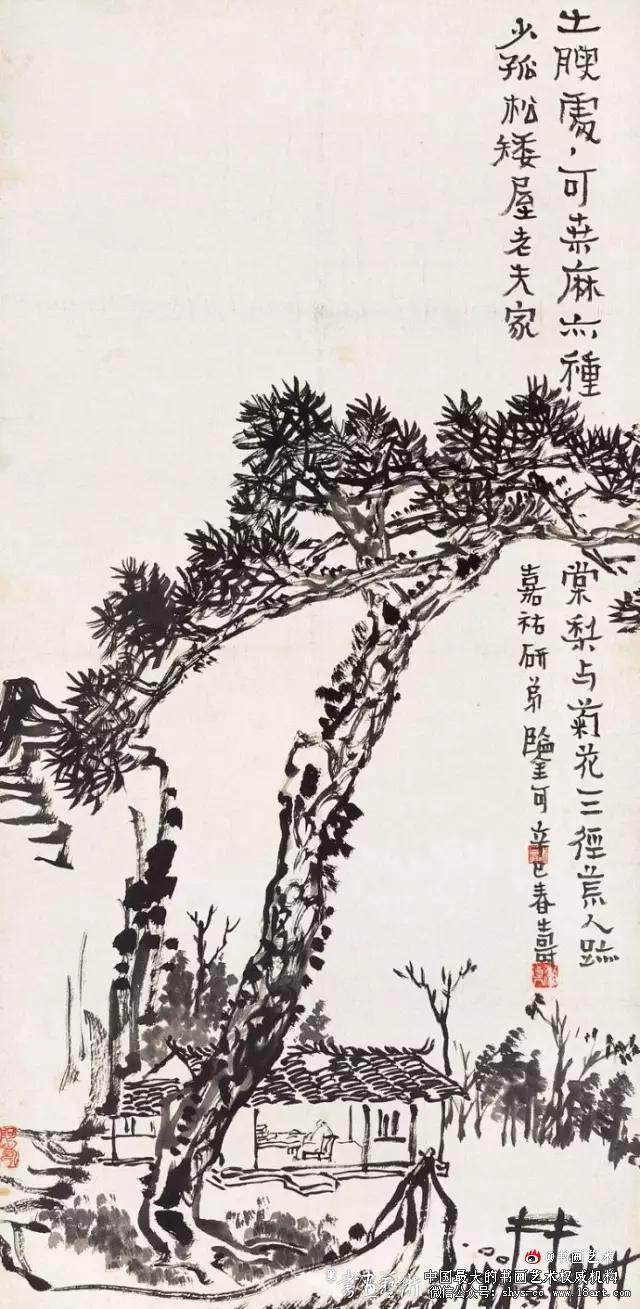 土腴處、可桒麻亦種棠梨与菊花三徑荒人跡
少孤松矮屋老夫家
嘉祐研弟鑒可辛巳春壽
@書画艺术
中国最大的书画艺术权威机构
微信公众号: shys-cc www.18art.com